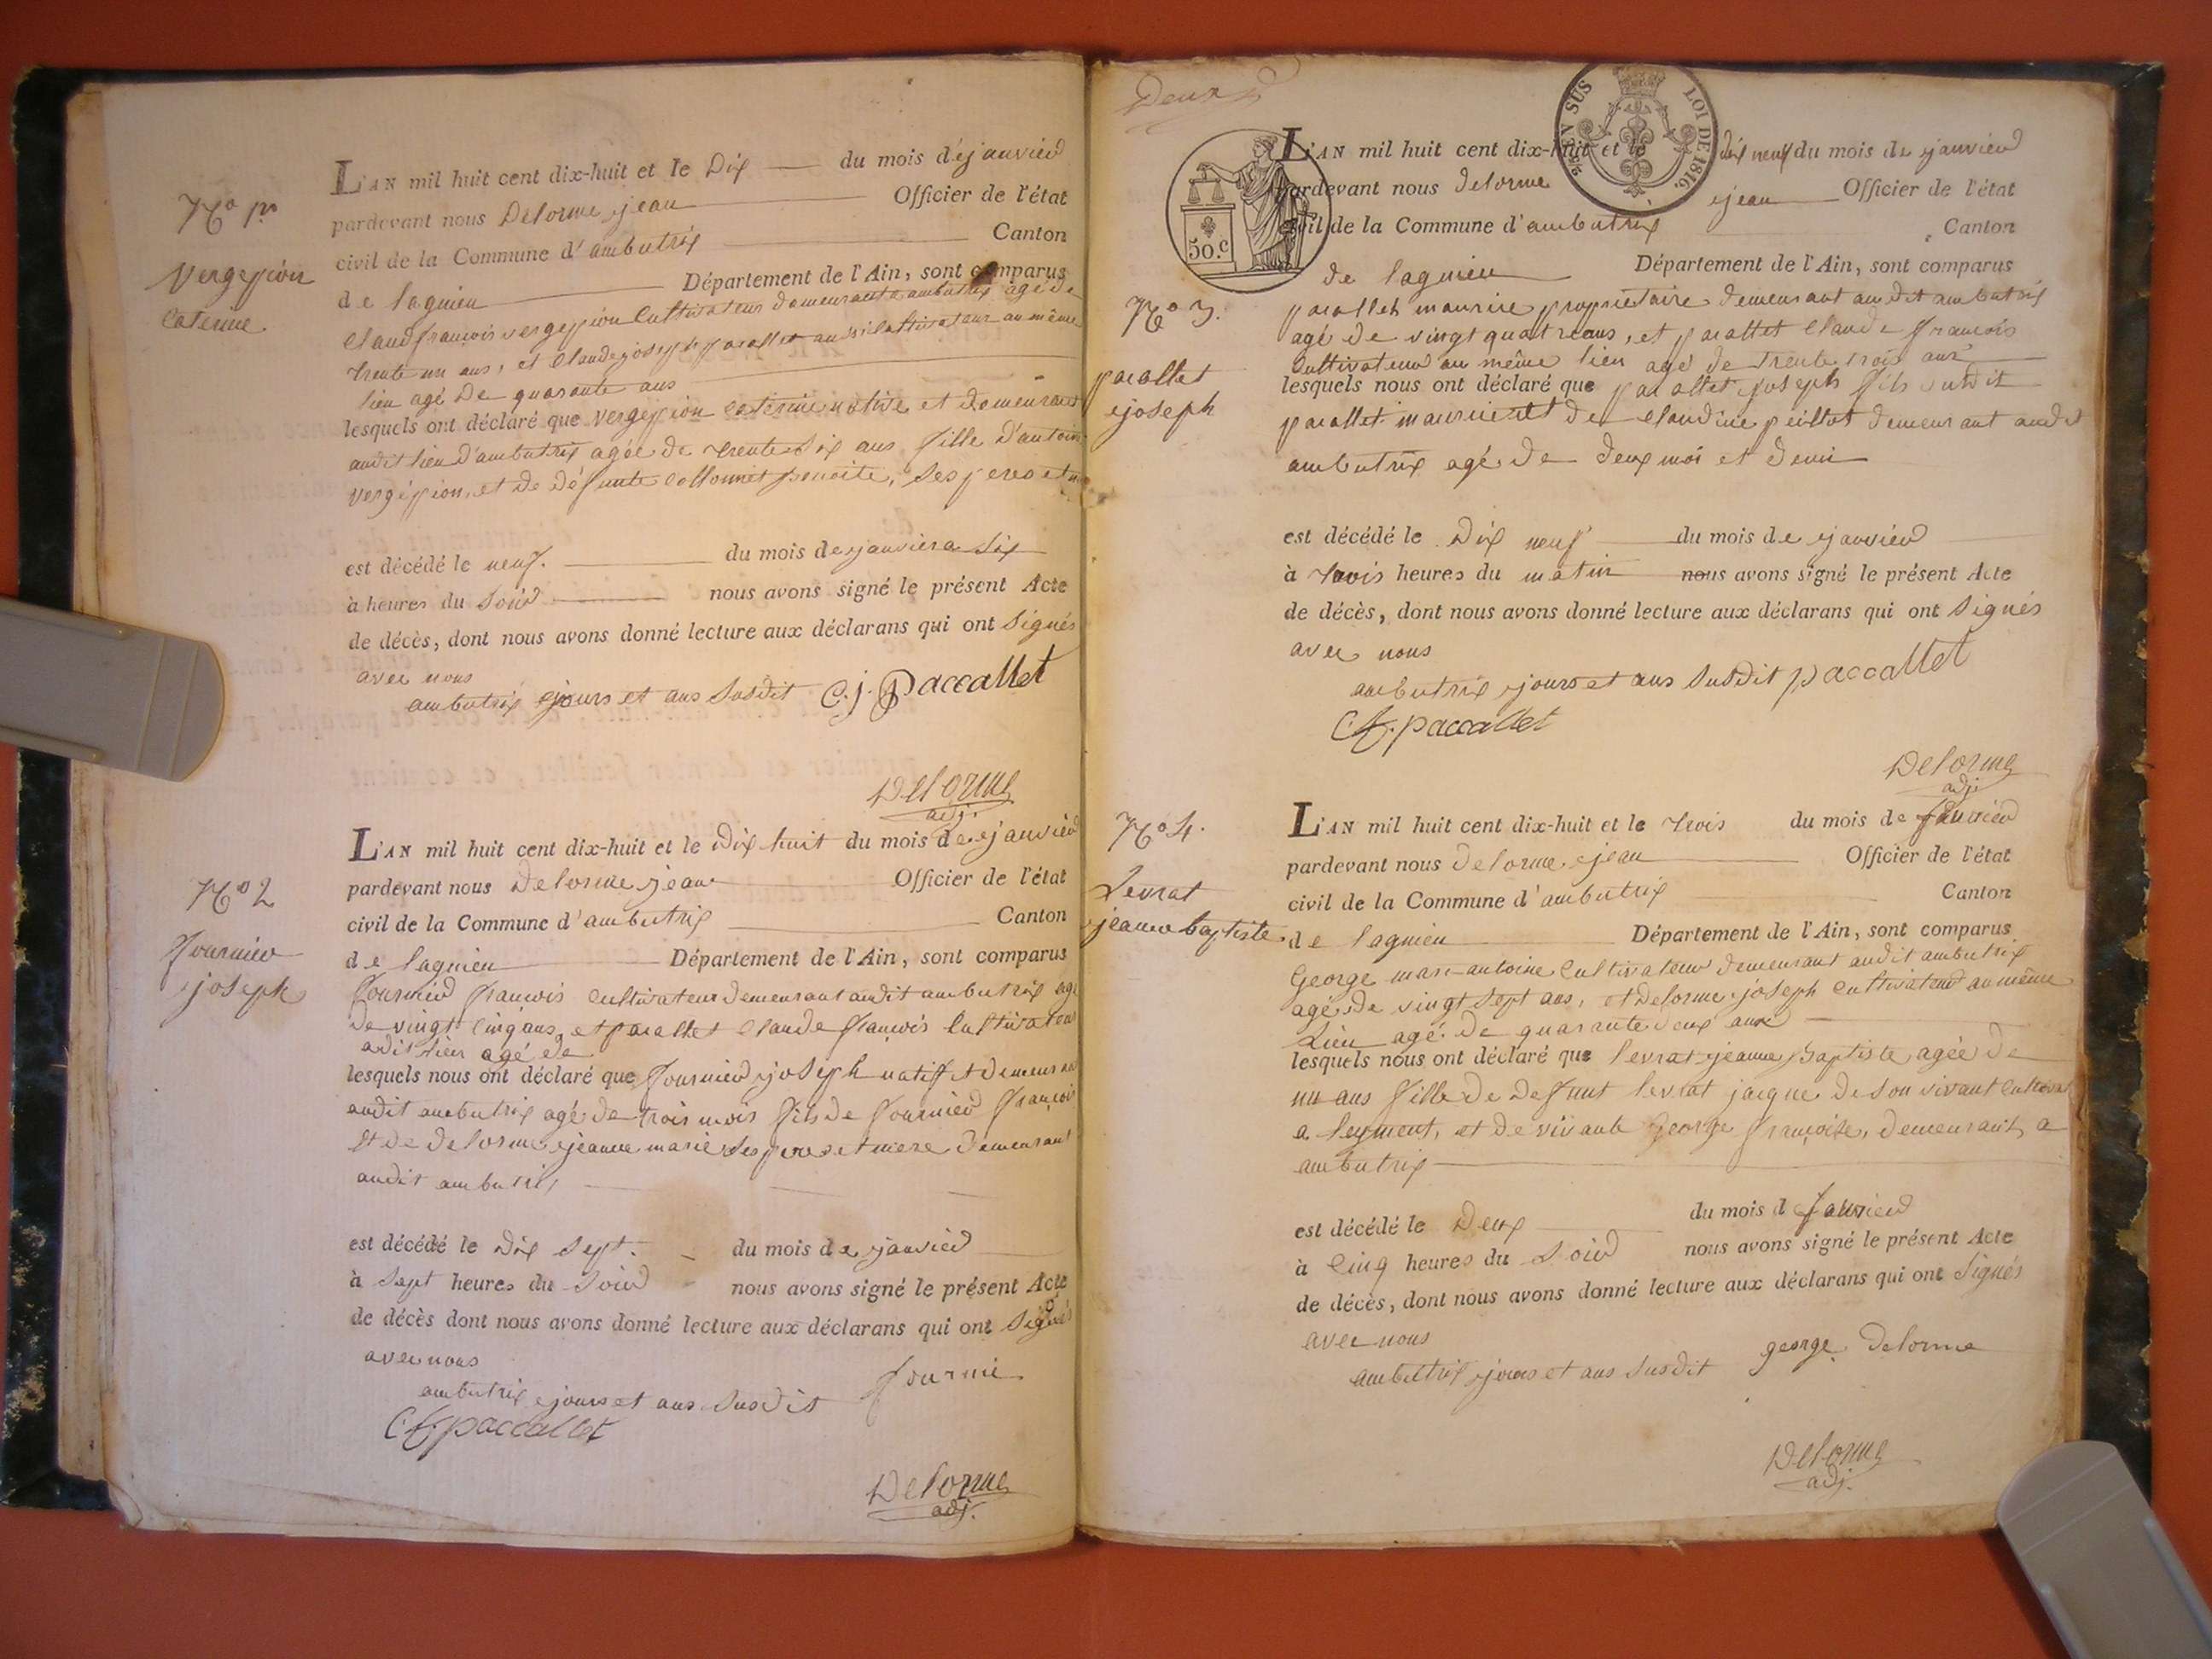 N.o 1.er
Vergession
Caterine
L'AN mil huit cent dix-huit et le Dix du mois de janvier
pardevant nous Delorme jean Officier de l'état
civil de la Commune d'ambutrix Canton
de lagnieu Département de l'Ain, sont comparus
Claud françois vergession Cultivateur demeurant a ambutrix agé de
trente un ans, et Claude joseph pacallet aussi Cultivateur au même
lieu agé de quarante ans
lesquels ont déclaré que vergession Caterine native et demeurant
audit lieu d'ambutrix agée de trente six ans fille d'antoine
vergession, et de défunte Collonnet benoite, ses pere et
est décédé le neuf. du mois de janvier a six
à heures du soir nous avons signé le présent Acte
de décès, dont nous avons donné lecture aux déclarans qui ont signés
avec nous
ambutrix jours et ans susdit C. j. Paccallet
Delorme
adj.
N.o 2
fournier
joseph
L'AN mil huit cent dix-huit et le Dix huit du mois de janvier
pardevant nous Delorme jean Officier de l'état
civil de la Commune d'ambutrix Canton
de lagnieu Département de l'Ain, sont comparus
fournier françois cultivateur demeurant audit ambutrix agé
de vingt cinq ans, et pacallet Claude françois Cultivateur
adit lieu agé de
lesquels nous ont déclaré que fournier joseph natif et demeurant
audit ambutrix agé de trois mois fils de fournier françois
et de Delorme jeanne marie ses pere et mere demeurant
audit ambutrix
est décédé le Dix sept. du mois de janvier
à sept heures du soir nous avons signé le présent Acte
de décès dont nous avons donné lecture aux déclarans qui ont signés
avec nous
fournié
ambutrix jours et ans susdit
C. f. paccallet
Delorme
adj.
Deux
EN SUS
LOI DE 1816.
50.c
L'AN mil huit cent dix-huit et le dix neuf du mois de janvier
pardevant nous delorme jean Officier de l'état
civil de la Commune d'ambutrix Canton
de lagnieu Département de l'Ain, sont comparus
N.o 3.
pacallet
joseph
pacallet maurice propriétaire demeurant audit ambutrix
agé de vingt quatre ans, et pacallet Claude françois
Cultivateur au même lieu agé de trente trois ans
lesquels nous ont déclaré que pacallet joseph fils sudit
pacallet maurice et de Claudine peillot demeurant audit
ambutrix agé de deux moi et demi
est décédé le Dix neuf du mois de janvier
à trois heures du matin nous avons signé le présent Acte
de décès, dont nous avons donné lecture aux déclarans qui ont signés
avec nous
ambutrix jours et ans susdit paccallet
C. f. paccallet
Delorme
adj.
N.o 4.
Levrat
jeanne baptiste
L'AN mil huit cent dix-huit et le trois du mois de favrier
pardevant nous delorme jean Officier de l'état
civil de la Commune d'ambutrix Canton
de lagnieu Département de l'Ain, sont comparus
George marc antoine Cultivateur demeurant audit ambutrix
agé de vingt sept ans, et delorme joseph cultivateur au même
Lieu agé de quarante deux ans
lesquels nous ont déclaré que levrat jeanne Baptiste agée de
un ans fille de Defunt levrat jacque de son vivant
a leyment, et de vivante George françoise, demeurant, a
ambutrix
est décédé le Deux du mois de favrier
à Cinq heures du soir nous avons signé le présent Acte
de décès, dont nous avons donné lecture aux déclarans qui ont signés
avec nous
ambutrix jours et ans susdit george Delorme
Delorme
adj.